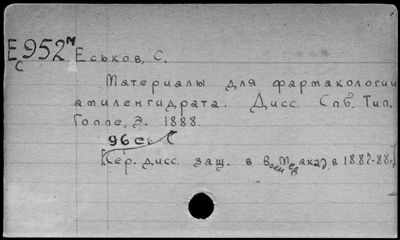 Е 952 м Еськов, С.
С
Материалы для фармакологии
амиленгидрата. Дисс. Спб, Тип.
Гоппе, Э. 1888.
96 с.
[Сер. дисс. защ. в Воен Мед акад, в 1887-88.]